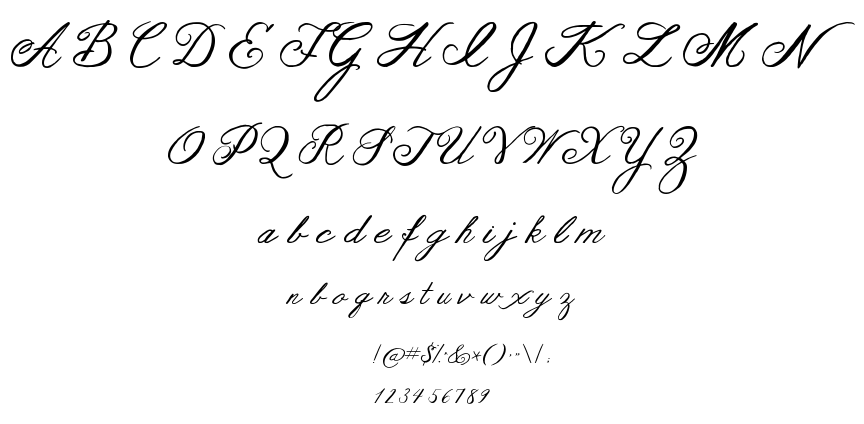 A B C D E F G H I J K L M N
O P Q R S T U V W X Y Z
a b c d e f g h i j k l m
n b o q r s t u v w x y z
! @ # $ % ^ & * ( ) . " \ / ;
1 2 3 4 5 6 7 8 9